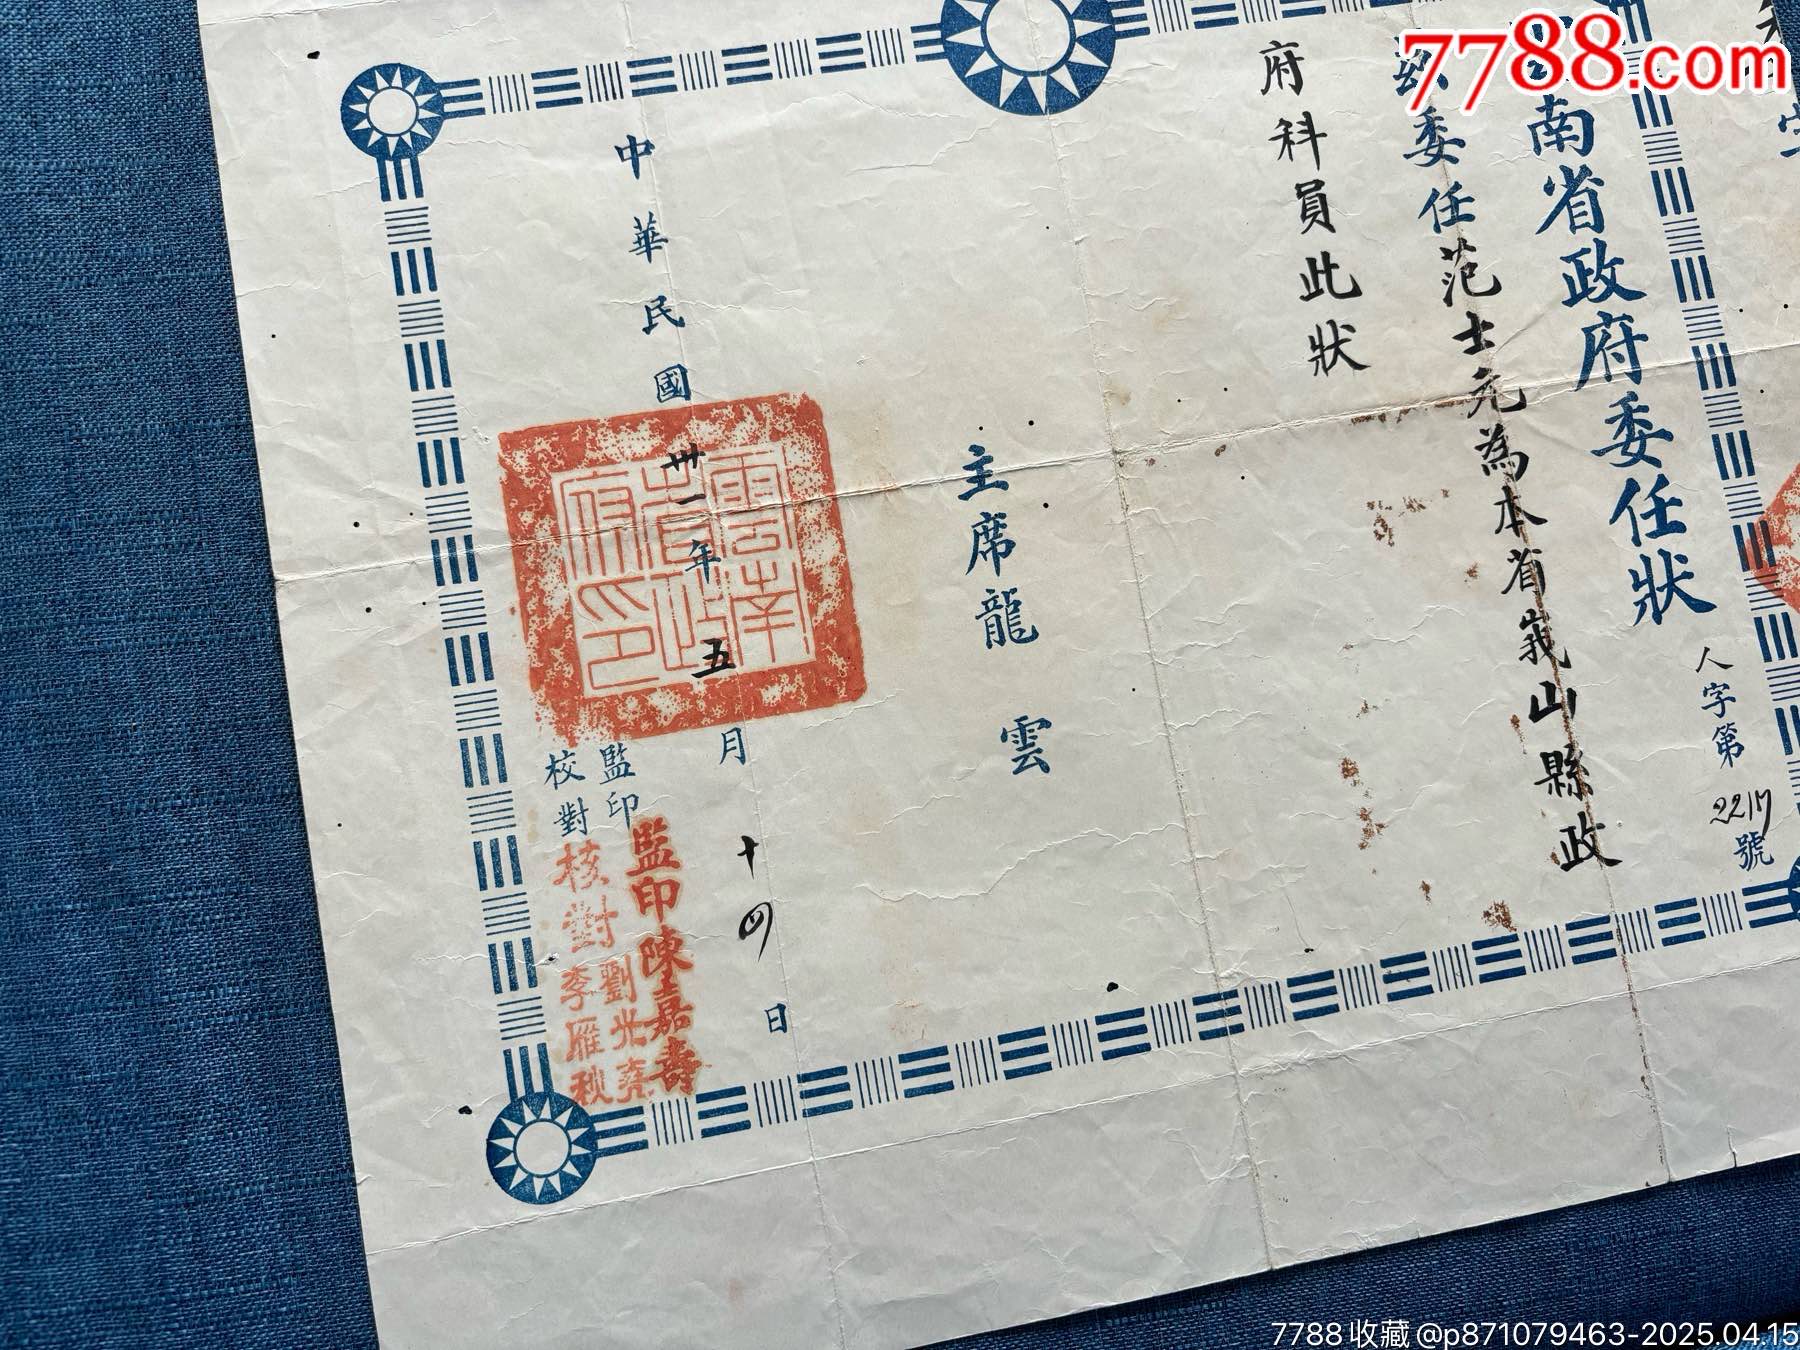 雲南省政府委任狀
人字第2217號
兹委任范士元為本省峩山縣政
府科員此狀
主席龍雲
中華民國卅一年五月十四日
雲南省政府印
監印
監印陳嘉壽
校對
核對劉光堯
李雁秋
7788.com
7788收藏@p871079463-2025.04.15